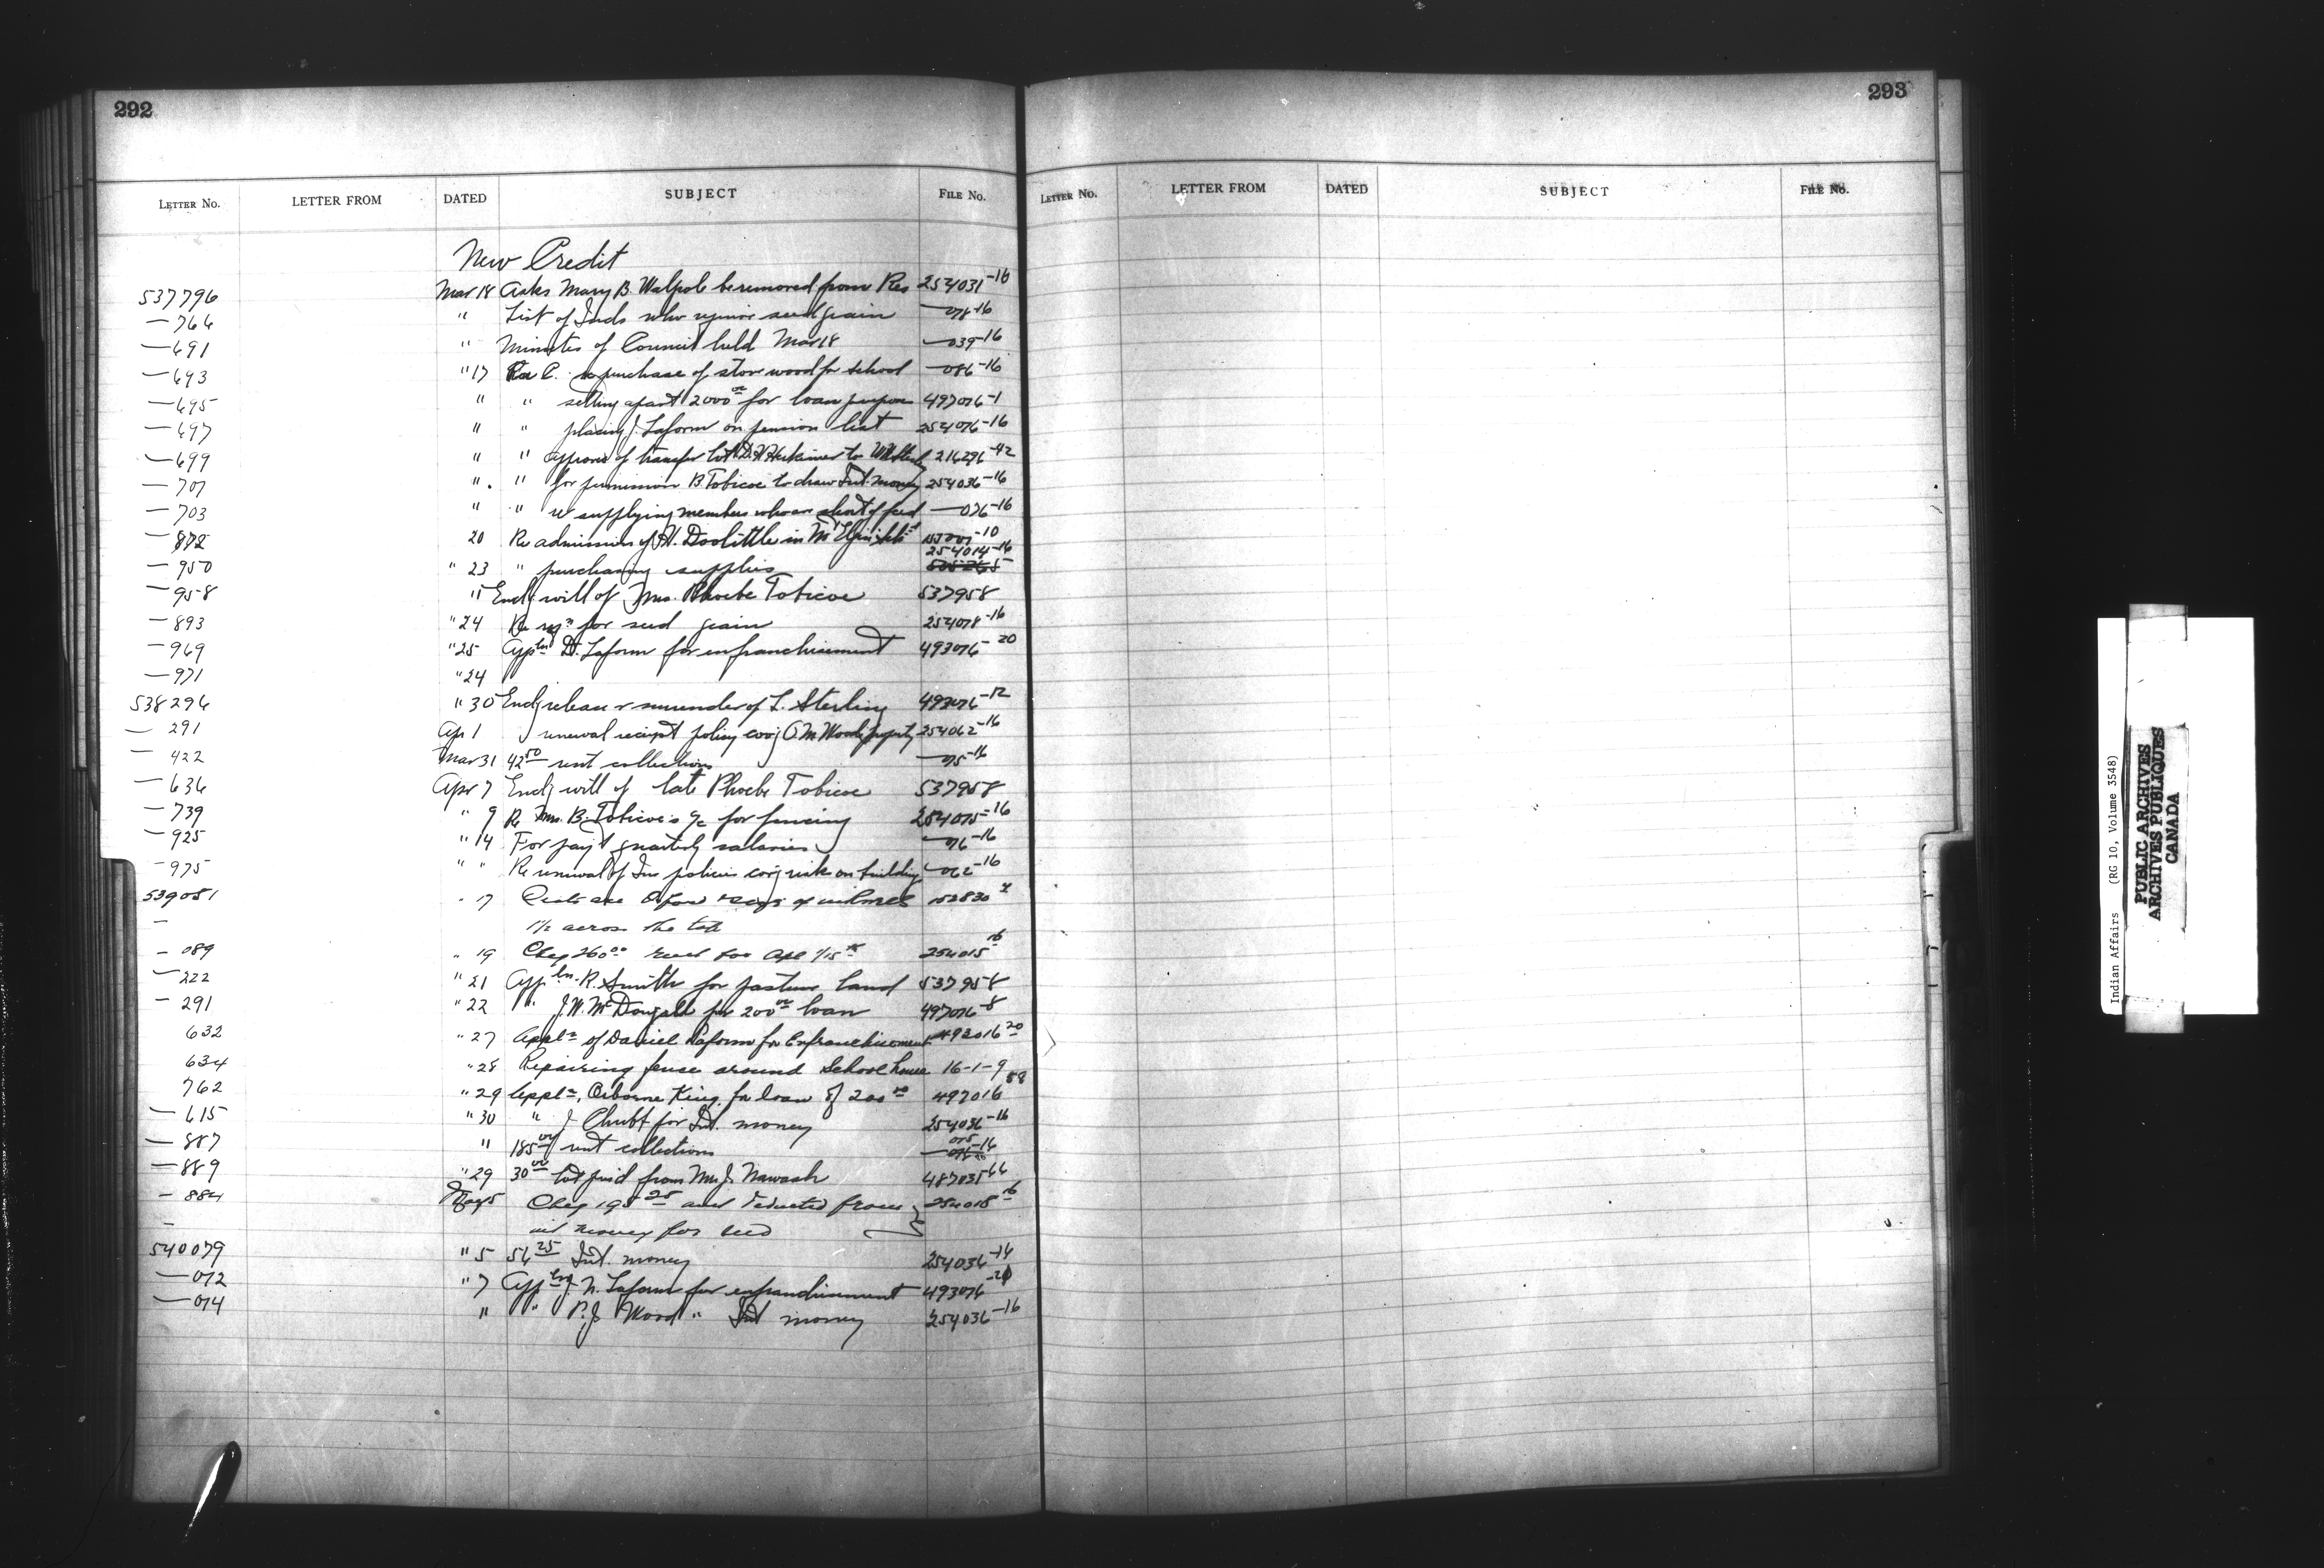 292
293
LETTER No. LETTER FROM DATED SUBJECT FILE No.
LETTER No. LETTER FROM DATED SUBJECT FILE No.
New Credit
537796 Mar 18 Asks Mary B. Walpole be removed from Res 254031-16
— 764 " List of Inds who require seed grain — 078-16
— 691 " Minutes of Council held Mar 18 — 039-16
— 693 " 17 R. C. re purchase of stove wood for school — 086-16
— 695 " " setting apart 2000 00 for loan purpose 497076-1
— 697 " " placing J. Laform on pension list 254076-16
— 699 " " approve of transfer lot D. Herkimer to 216296-42
— 701 " " for permission B Tobicoe to draw Int. money 254036-16
— 703 " " re supplying members who are short of feed — 076-16
— 872 20 Re admission of H. Doolittle in Mt Elgin -10
— 950 " 23 " purchasing supplies 254014-16
— 958 " Encl. will of Mrs. Phoebe Tobicoe 537958
— 893 " 24 Re reqn for seed grain 254078-16
— 969 " 25 Appln D. Laform for enfranchisement 493076-20
— 971 " 24
538296 " 30 Encl. release & surrender of L. Sterling 493076-12
— 291 Apr 1 renewal receipt policy covg O. M Wood property 254062-16
— 422 Mar 31 42 50 rent collections — 75-16
— 636 Apr 7 Encl. will of late Phoebe Tobicoe 537958
— 739 " 9 Re Mrs. B. Tobicoe's a/c for fencing 254075-16
— 925 " 14 For payt quarterly salaries — 76-16
— 975 " " Re renewal of Ins policies covg risk on building — 062-16
539051 " 17
— 1½ across the
— 089 " 19 Cheq 260 00 254015 16
— 222 " 21 Appln. R. Smith for pasture land 537958
— 291 " 22 " J. W. McDougall for 200 00 loan 497076-8
632 " 27 Appln of Daniel Laform for Enfranchisement 493016 20
634 " 28 Repairing fence around School house 16-1-9
762 " 29 Appln. Osborne King for loan of 200 00 497016 58
— 615 " 30 " J Chubb for Int. money 254036-16
— 887 " 185 00 rent collections — 075-16
— 889 " 29 30 00 paid from Mrs J. Nawash 487035 66
— 884 May 5 Cheq 195 25 deducted from 254015 16
— int money for seed
540079 " 5 56 25 Int. money 254036-16
— 012 " 7 Appln J. N. Laform for enfranchisement 493076-21
— 014 " " P. J Wood " Int money 254036-16
Indian Affairs (RG 10, Volume 3548)
PUBLIC ARCHIVES
ARCHIVES PUBLIQUES
CANADA